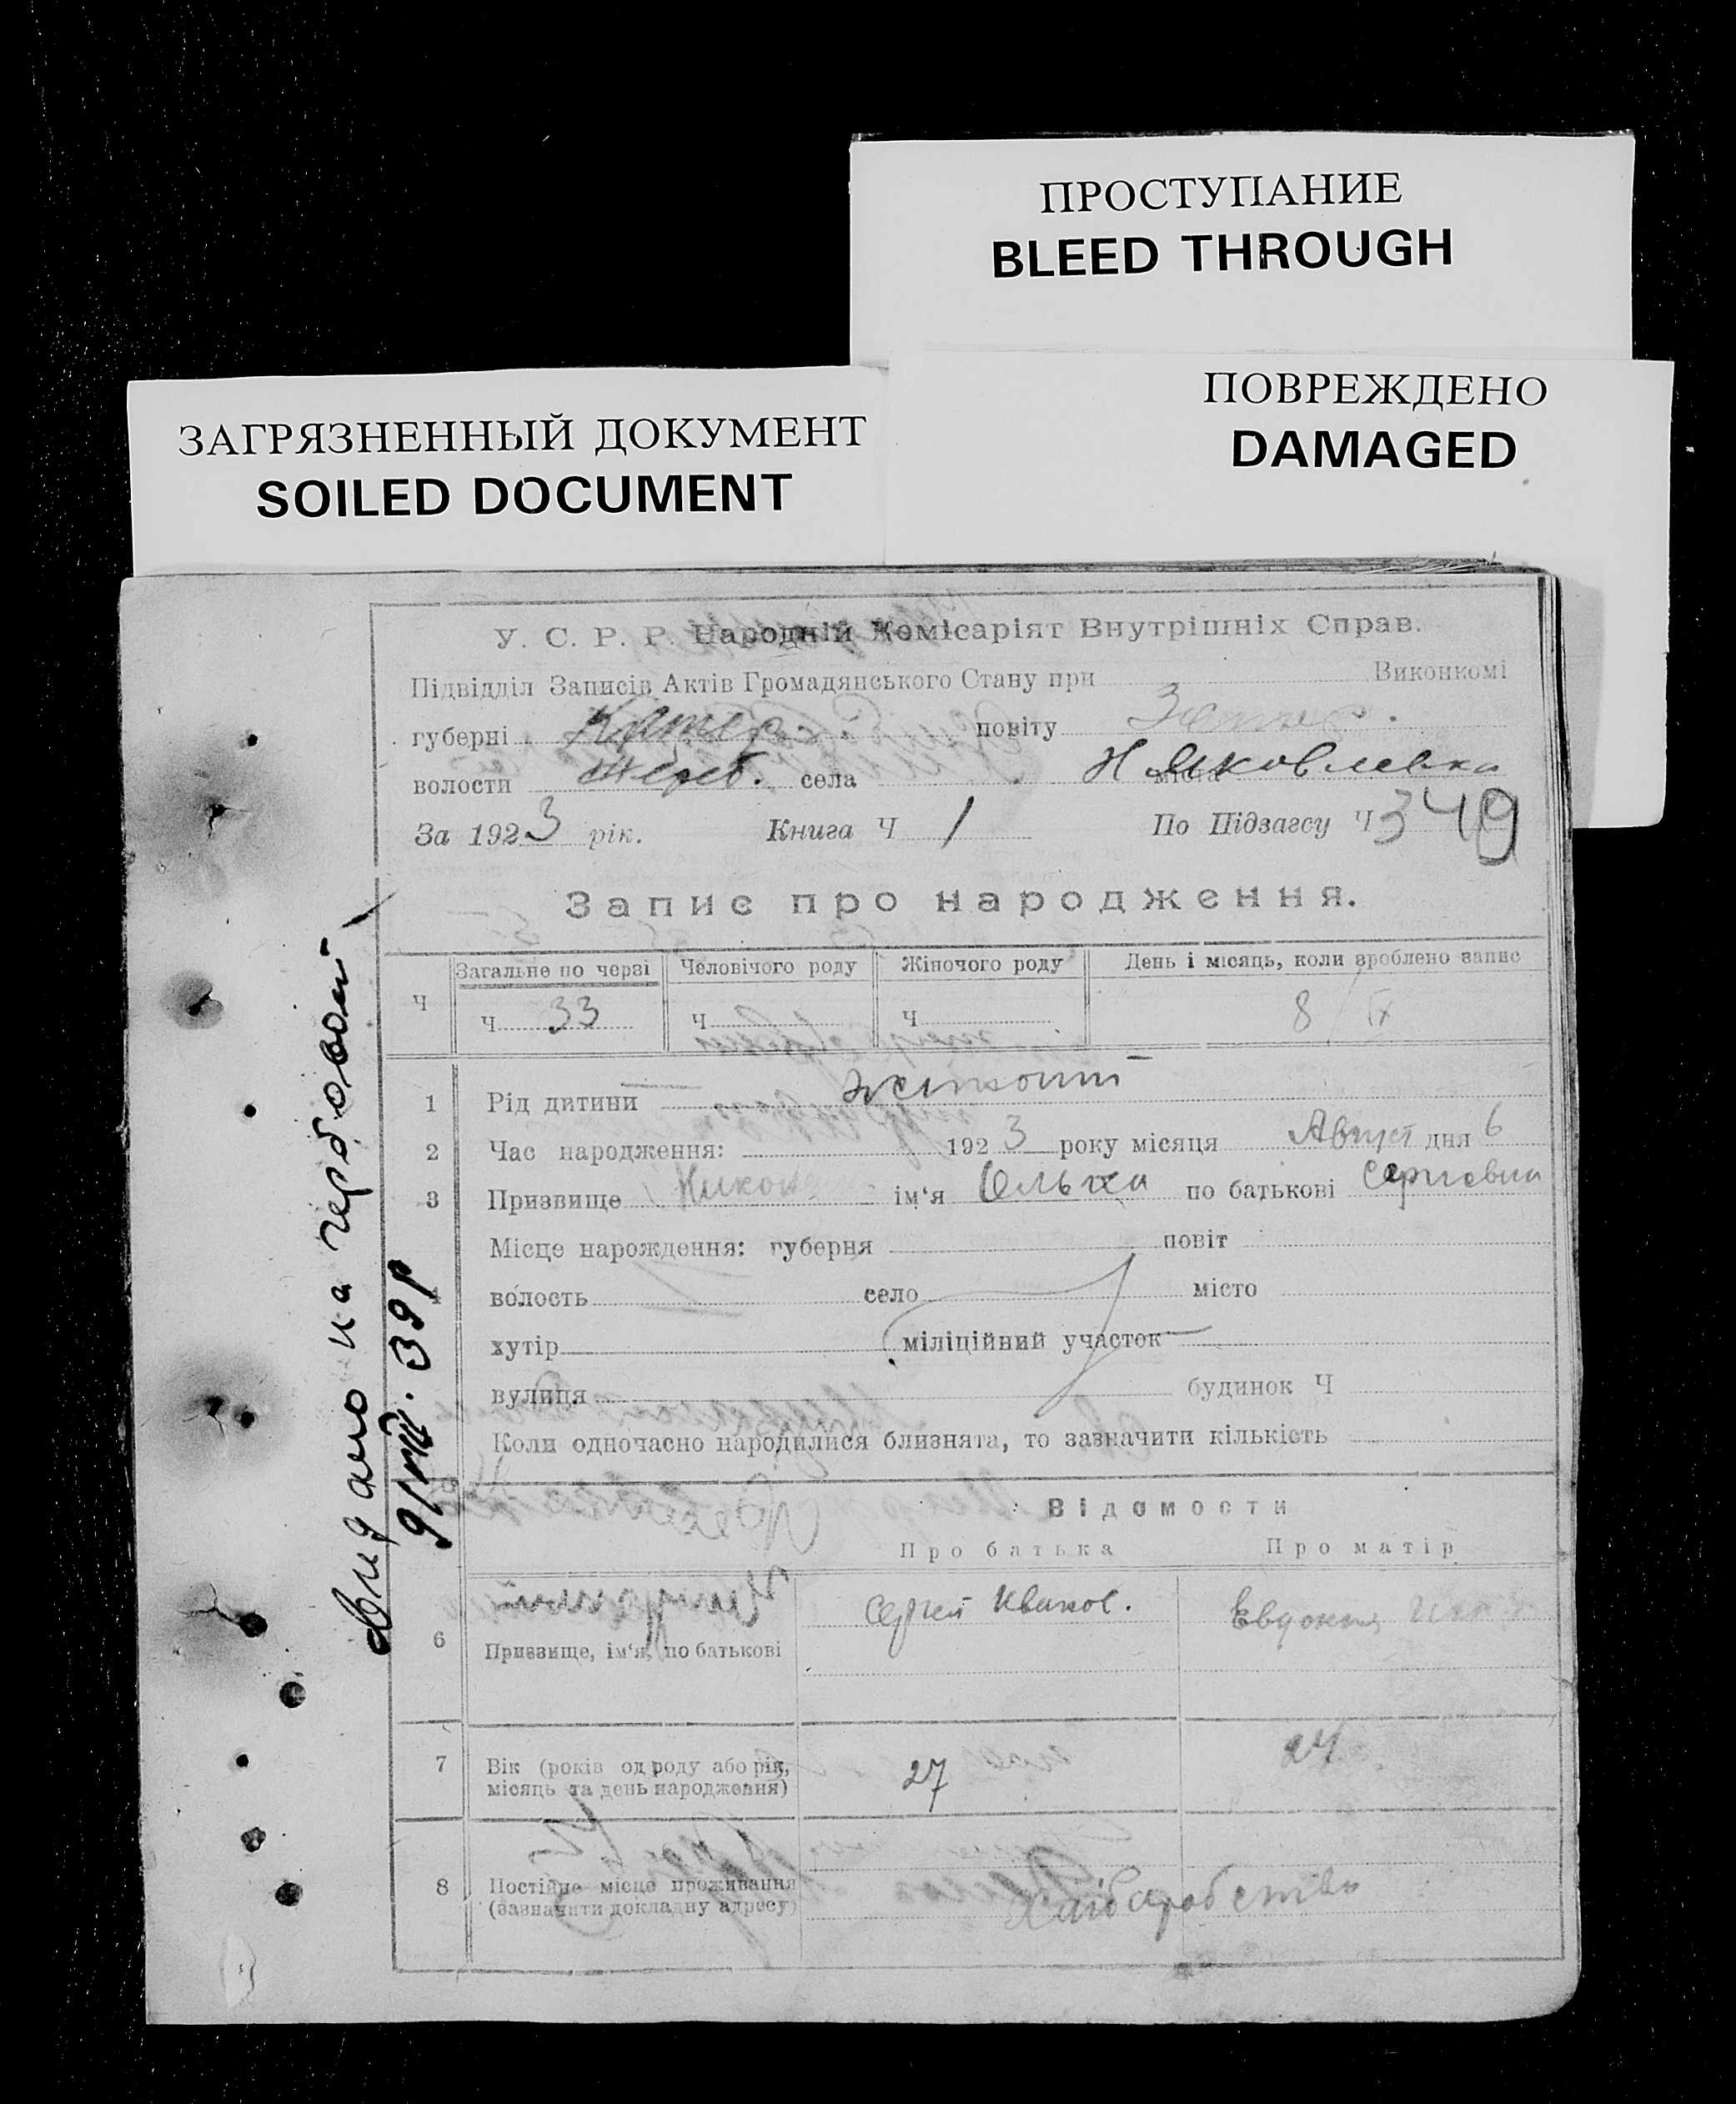 ПРОСТУПАНИЕ
BLEED THROUGH
ПОВРЕЖДЕНО
DAMAGED
ЗАГРЯЗНЕННЫЙ ДОКУМЕНТ
SOILED DOCUMENT
У. С. Р. Р. Народній Комісаріят Внутрішніх Справ.
Підвідділ Записів Актів Громадянського Стану при Виконкомі
губерні Катер. повіту
волости Жереб. села міста Н Яковлевка
За 1923 рік. Книга Ч 1 По Підзагсу Ч 349
Запис про народження.
Ч Загальне по черзі Человічого роду Жіночого роду День і місяць, коли зроблено запис
Ч 33 Ч Ч 8/IX
1 Рід дитини
2 Час народження: 1923 року місяця Август дня 6
3 Призвище ім'я Ольга по батькові Сергіевна
Місце нарождення: губерня повіт
4 волость село місто
хутір міліційний участок
вулиця будинок Ч
Коли одночасно народилися близнята, то зазначити кількість
Відомости
Про батька Про матір
6 Призвище, ім'я, по батькові Сергей Иванов. Евдокия
7 Вік (років од роду або рік, місяць та день народження) 27 24
8 Постійне місце проживання (зазначити докладну адресу) Хліборобство
Видано на гербовой
9/VIII. 39 р